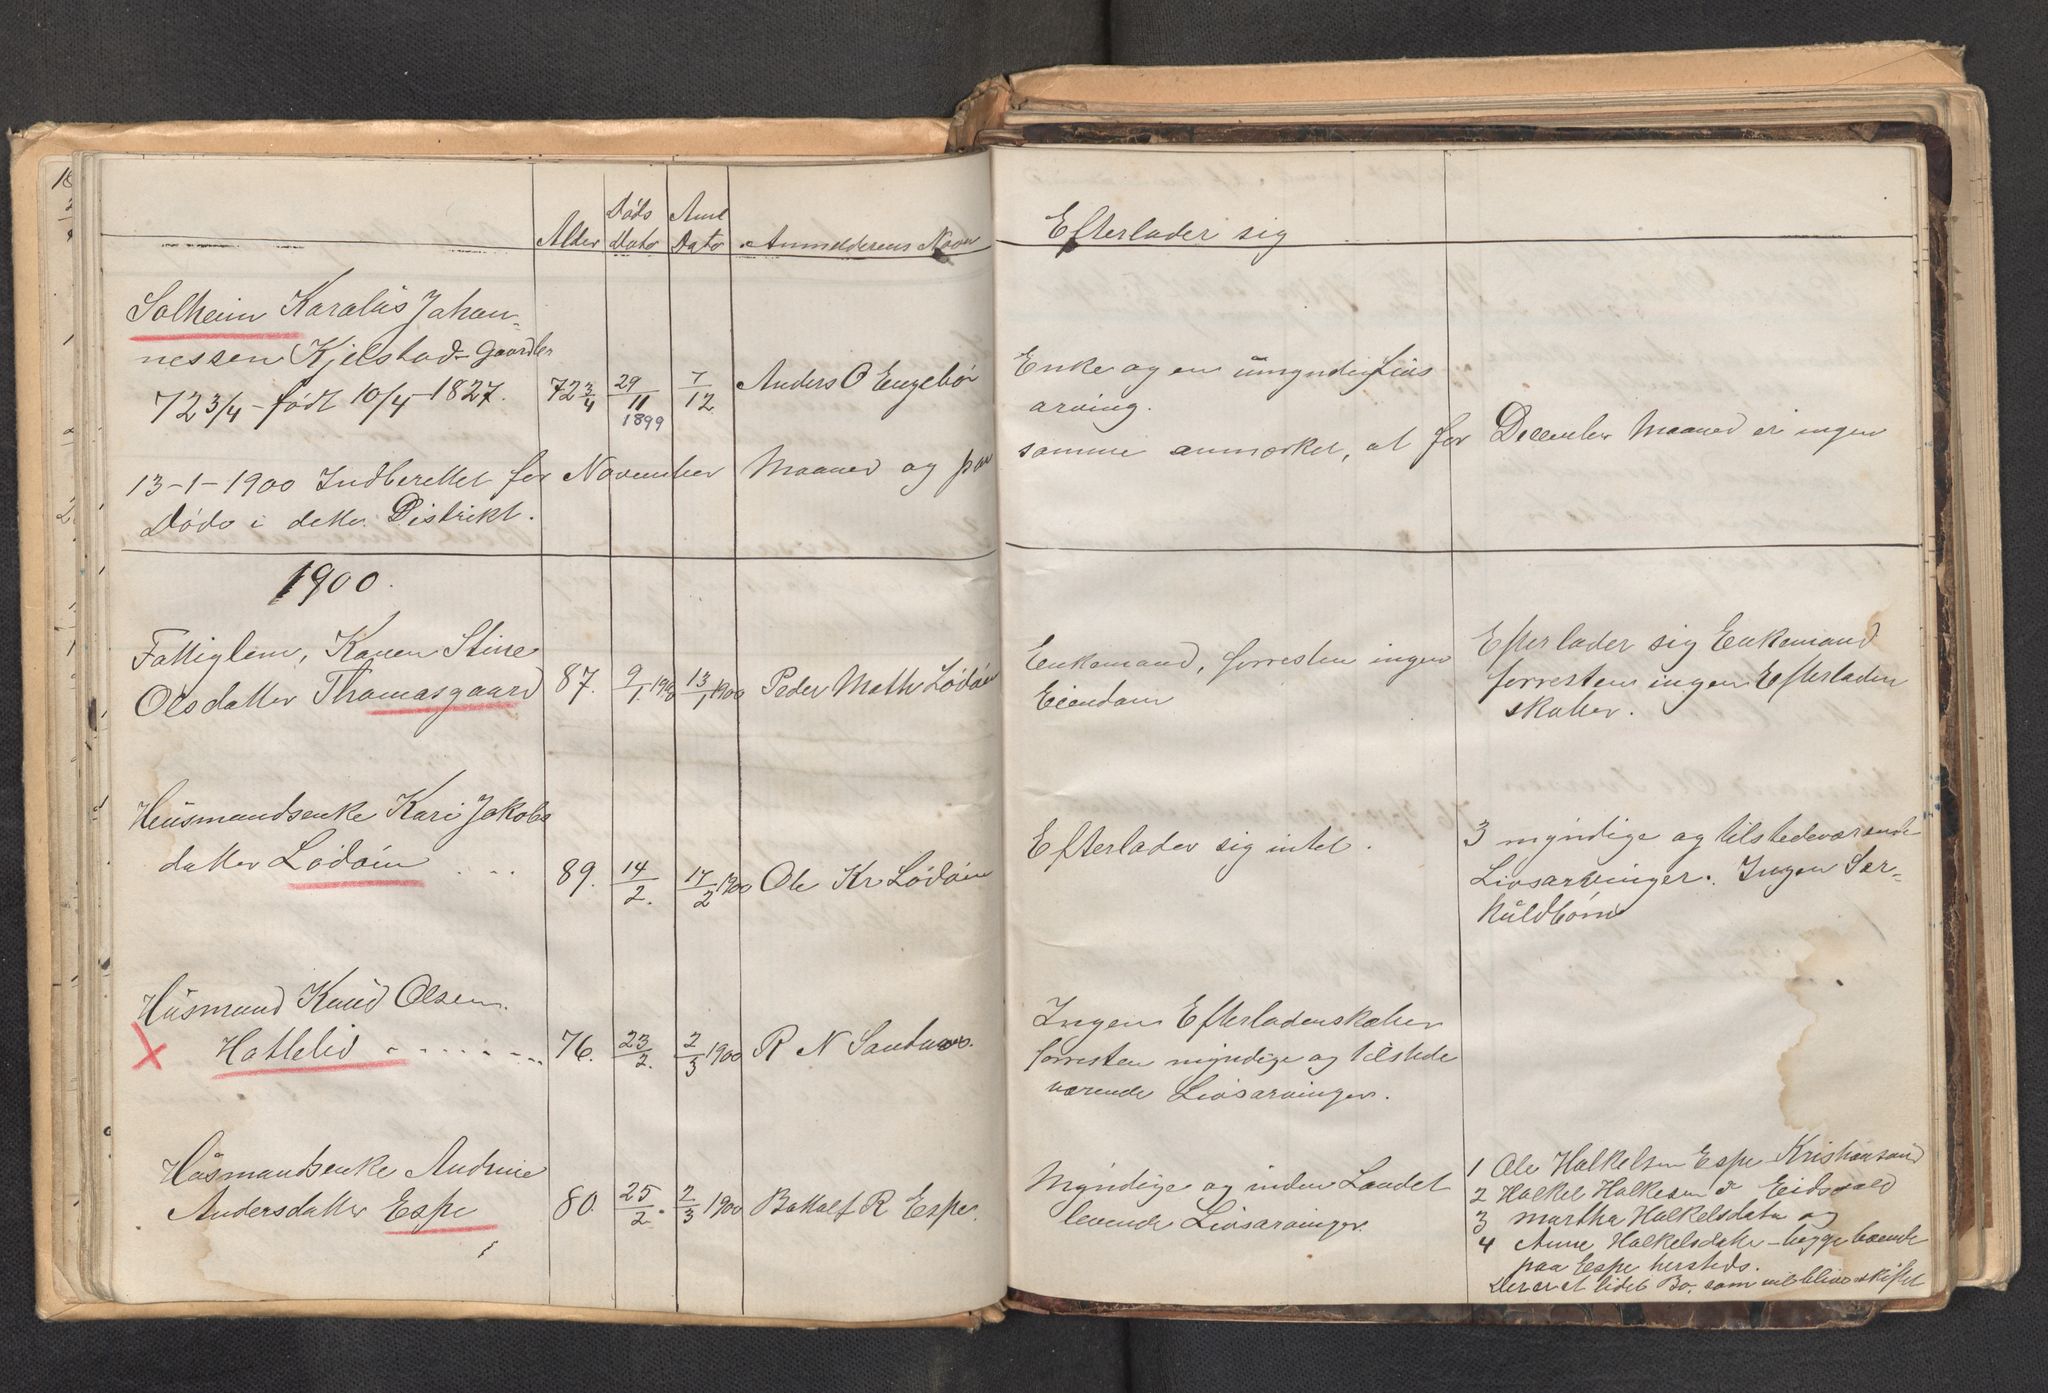 Alder Døds Dato Anm Dato Anmelderens Navn Efterlader sig
Solheim Karalus Johan-
nessen Kjelstad - Gaardbr
72 3/4 - født 10/4 - 1827. 72 3/4 29/11 1899 7/12 Anders O Engebø Enke og en umyndig Livs
arving.
13-1-1900 Indberettet for November Maaned og paa samme anmærket, at for December Maaned er ingen
Døde i dette Distrikt.
1900.
Fattiglem, Karen Stine
Olsdatter Thomasgaard 87. 9/1 1900 13/1 1900 Peder Math Lødøen Enkemand, forresten ingen
Eiendom
Efterlader sig Enkemand
forresten ingen Efterladen
skaber.
Husmandsenke Kari Jakobs
datter Lødøen 89. 14/2. 17/2 1900 Ole Kr Lødøen Efterlader sig intet.
3 myndige og tilstedeværende
Livsarvinger. Ingen Sær-
kuldbørn
Husmand Knud Olsen
X Hatlelid 76. 23/2. 2/3 1900 R N Sandnes. Ingen Efterladenskaber
forresten myndige og tilstede
værende Livsarvinger.
Husmandsenke Andrine
Andersdatter Espe 80. 25/2. 2/3 1900 Botholf R Espe. Myndige og inden Landet
levende Livsarvinger
1 Ole Halkelsen Espe Kristiansund
2 Halkel Halkelsen d Eidsvold
3 Martha Halkelsdatter og
4 Anne Halkelsdatter - begge boende
paa Espe hersteds.
Der er et lidet Bo, som vil blive skiftet